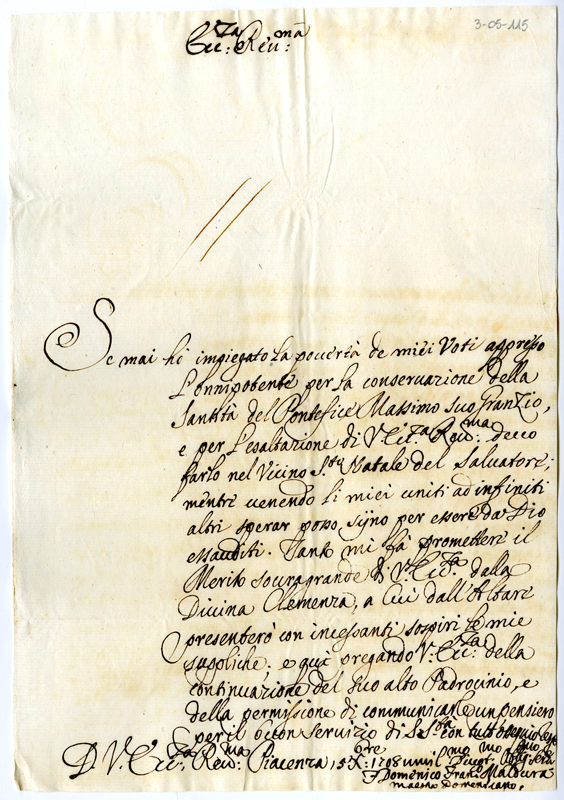 3-05-115
Ecc:za Reu:ma
Se mai hò impiegato la pouertà de miei Voti appresso
L'onnipotente per la conseruazione della
Santità del Pontefice Massimo suo Gran Zio,
e per l'esaltazione di V: Ecc:za Reu:ma deuo
farlo nel Vicino S:to Natale del Saluatore;
mentre uenendo li miei uniti ad infiniti
altri sperar posso, sijno per essere da Dio
essauditi. Tanto mi fà promettere il
Merito souragrande di V: Ecc:za dalla
Diuina Clemenza, a Cui dall'Altare
presenterò con incessanti sospiri le mie
suppliche: e quì pregando V: Ecc:za della
continuazione del suo alto Padrocinio, e
della permissione di communicarle un pensiero
per il buon seruizio di con tutto
D V: Ecc:za Reu:ma Piacenza, 15 Xbre: 1708 umil:mo
F Domenico Fran:co Maldura
maestro Domenicano.